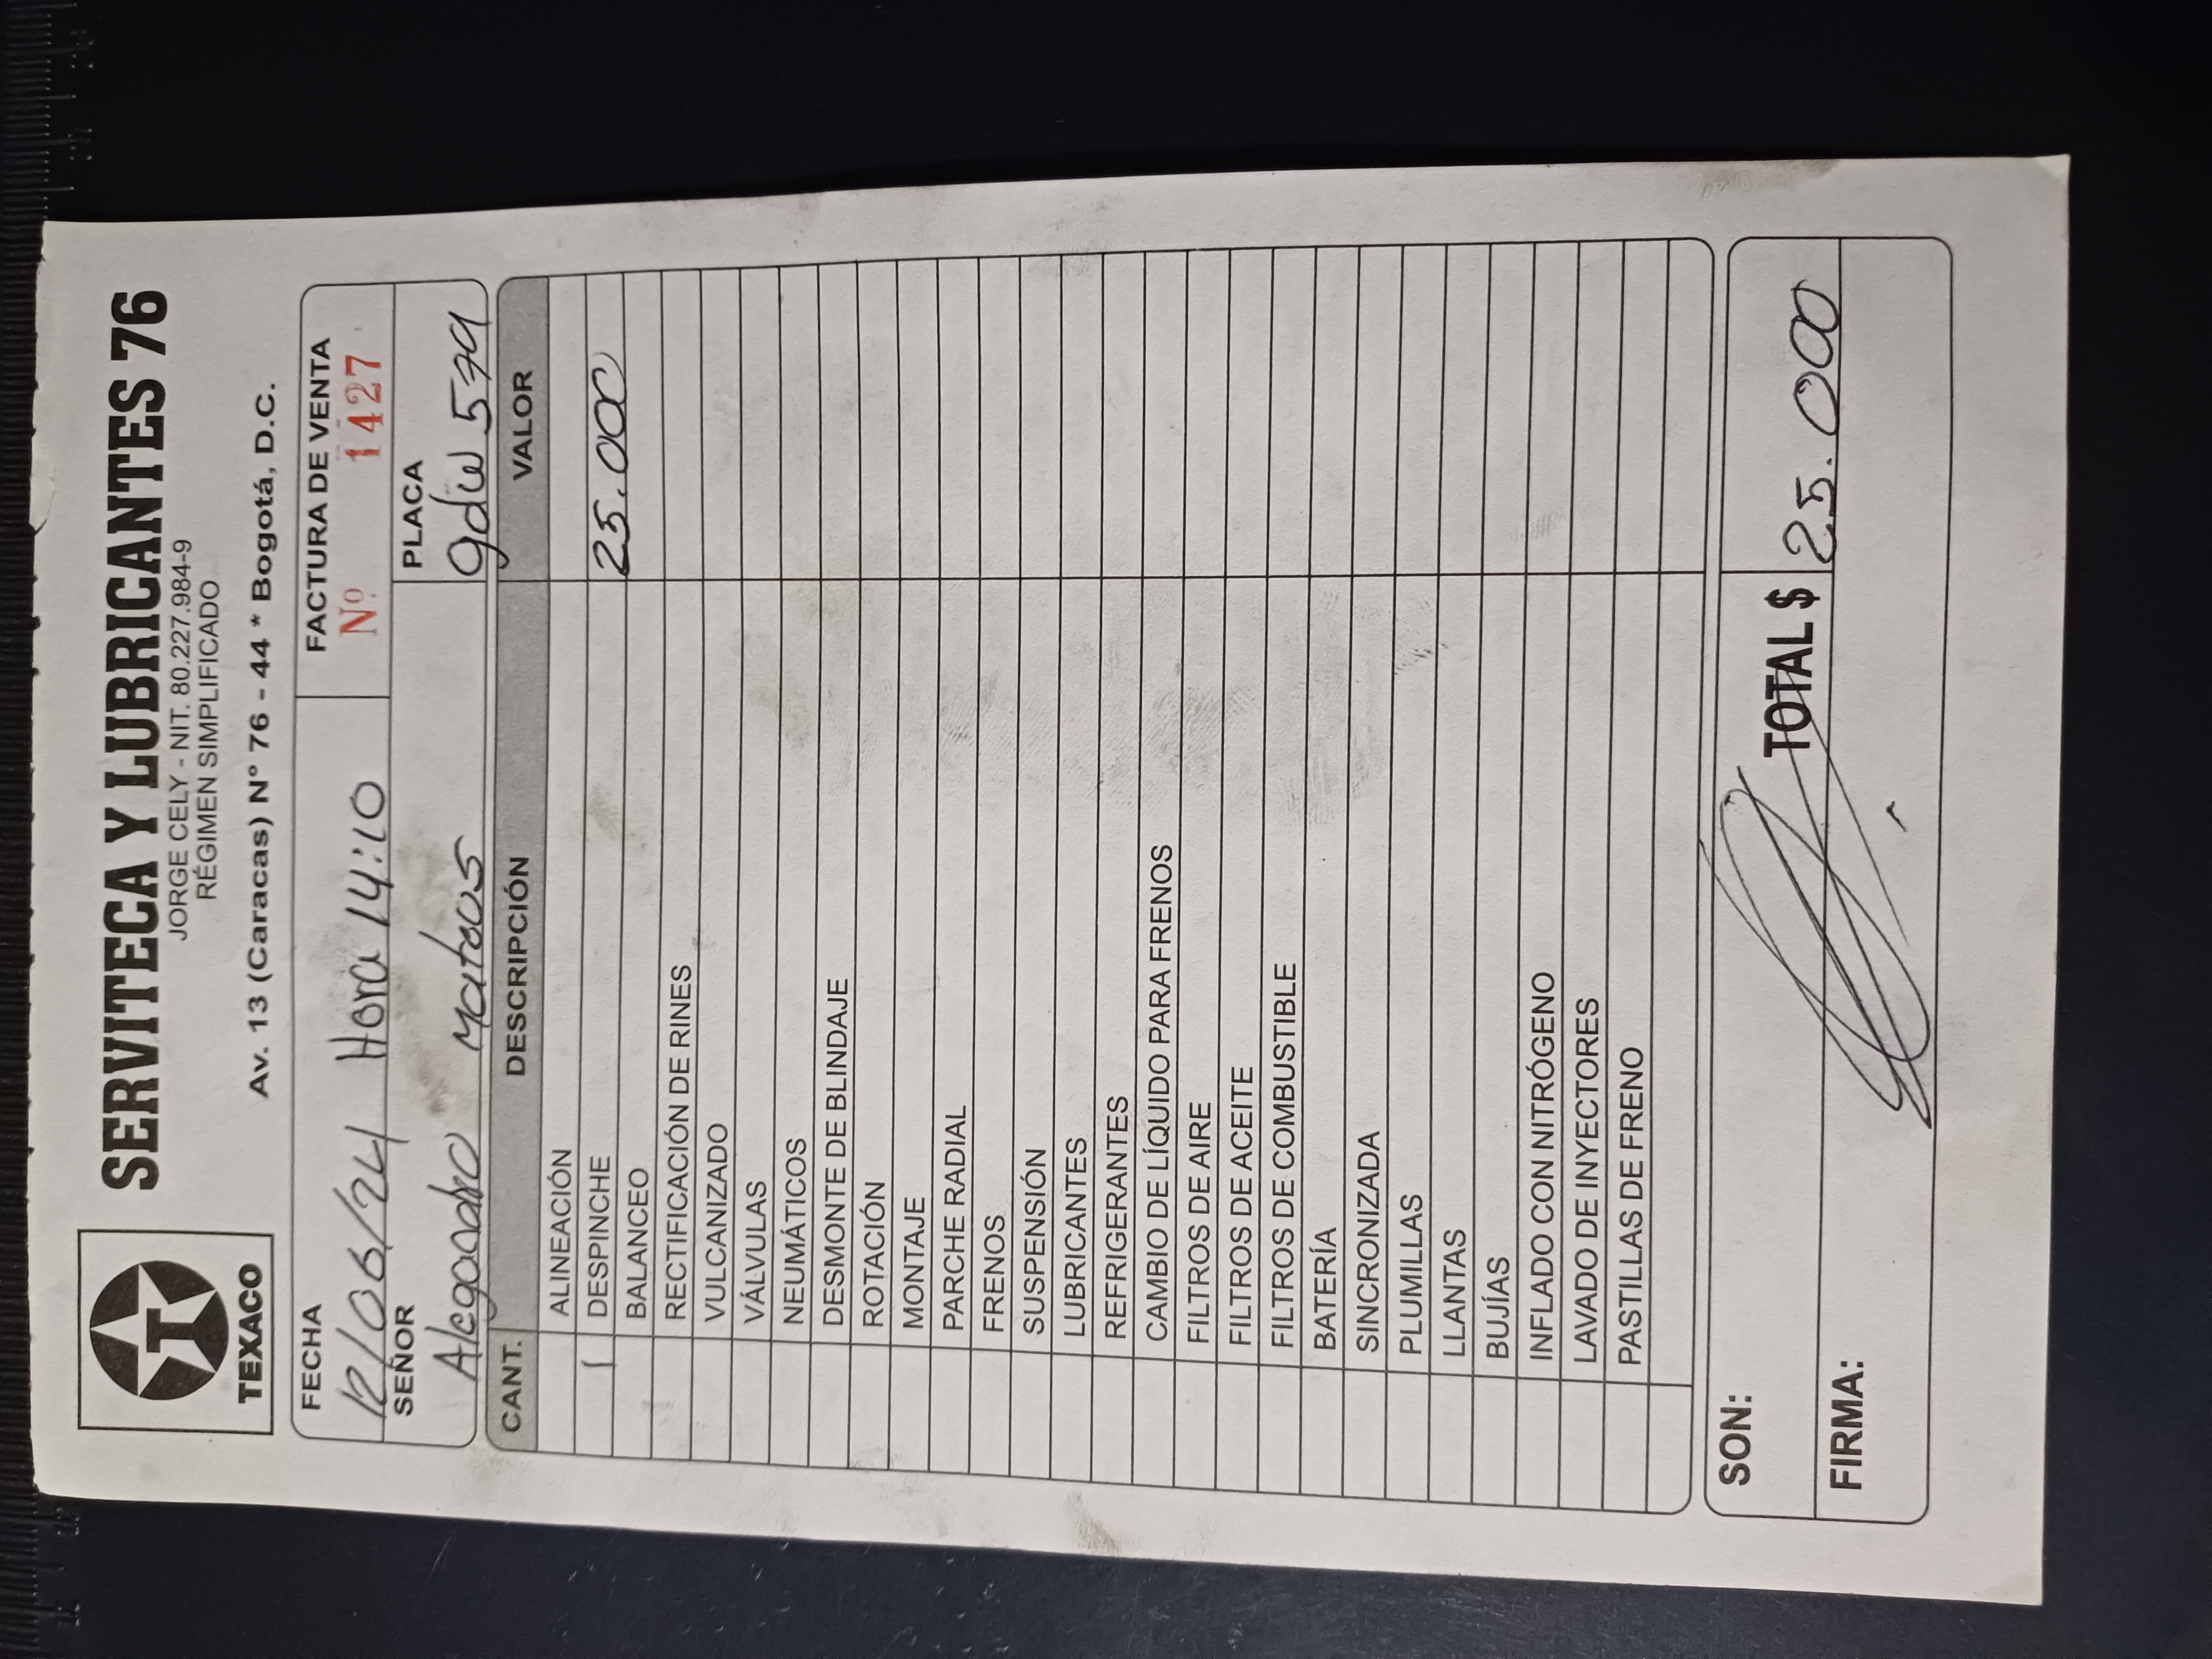 TEXACO
SERVITECA Y LUBRICANTES 76
JORGE CELY - NIT. 80.227.984-9
RÉGIMEN SIMPLIFICADO
Av. 13 (Caracas) N° 76 - 44 * Bogotá, D.C.
FECHA
12/06/24 Hora 14:10
FACTURA DE VENTA
Nº 1427
SEÑOR
Mateus
PLACA
gdw 579
CANT. DESCRIPCIÓN VALOR
ALINEACIÓN
1 DESPINCHE 25.000
BALANCEO
RECTIFICACIÓN DE RINES
VULCANIZADO
VÁLVULAS
NEUMÁTICOS
DESMONTE DE BLINDAJE
ROTACIÓN
MONTAJE
PARCHE RADIAL
FRENOS
SUSPENSIÓN
LUBRICANTES
REFRIGERANTES
CAMBIO DE LÍQUIDO PARA FRENOS
FILTROS DE AIRE
FILTROS DE ACEITE
FILTROS DE COMBUSTIBLE
BATERÍA
SINCRONIZADA
PLUMILLAS
LLANTAS
BUJÍAS
INFLADO CON NITRÓGENO
LAVADO DE INYECTORES
PASTILLAS DE FRENO
SON: TOTAL $ 25.000
FIRMA: